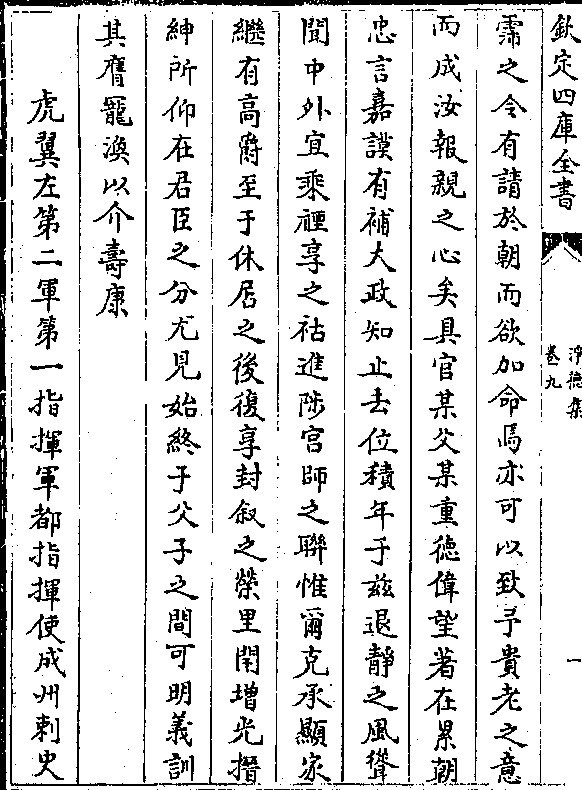 欽定四庫全書
淨德集
卷九
一
霈之令有請於朝而欲加命焉亦可以致予貴老之意
而成汝報親之心矣具官某父某重德偉望著在累朝
忠言嘉謨有補大政知止去位積年于兹退靜之風聳
聞中外宜乘禋享之祜進陟宫師之聯惟爾克承顯家
繼有高爵至于休居之後復享封叙之榮里閈增光搢
紳所仰在君臣之分尤見始終于父子之間可明義訓
其膺寵渙以介壽康
虎翼左第二軍第一指揮軍都指揮使成州刺史